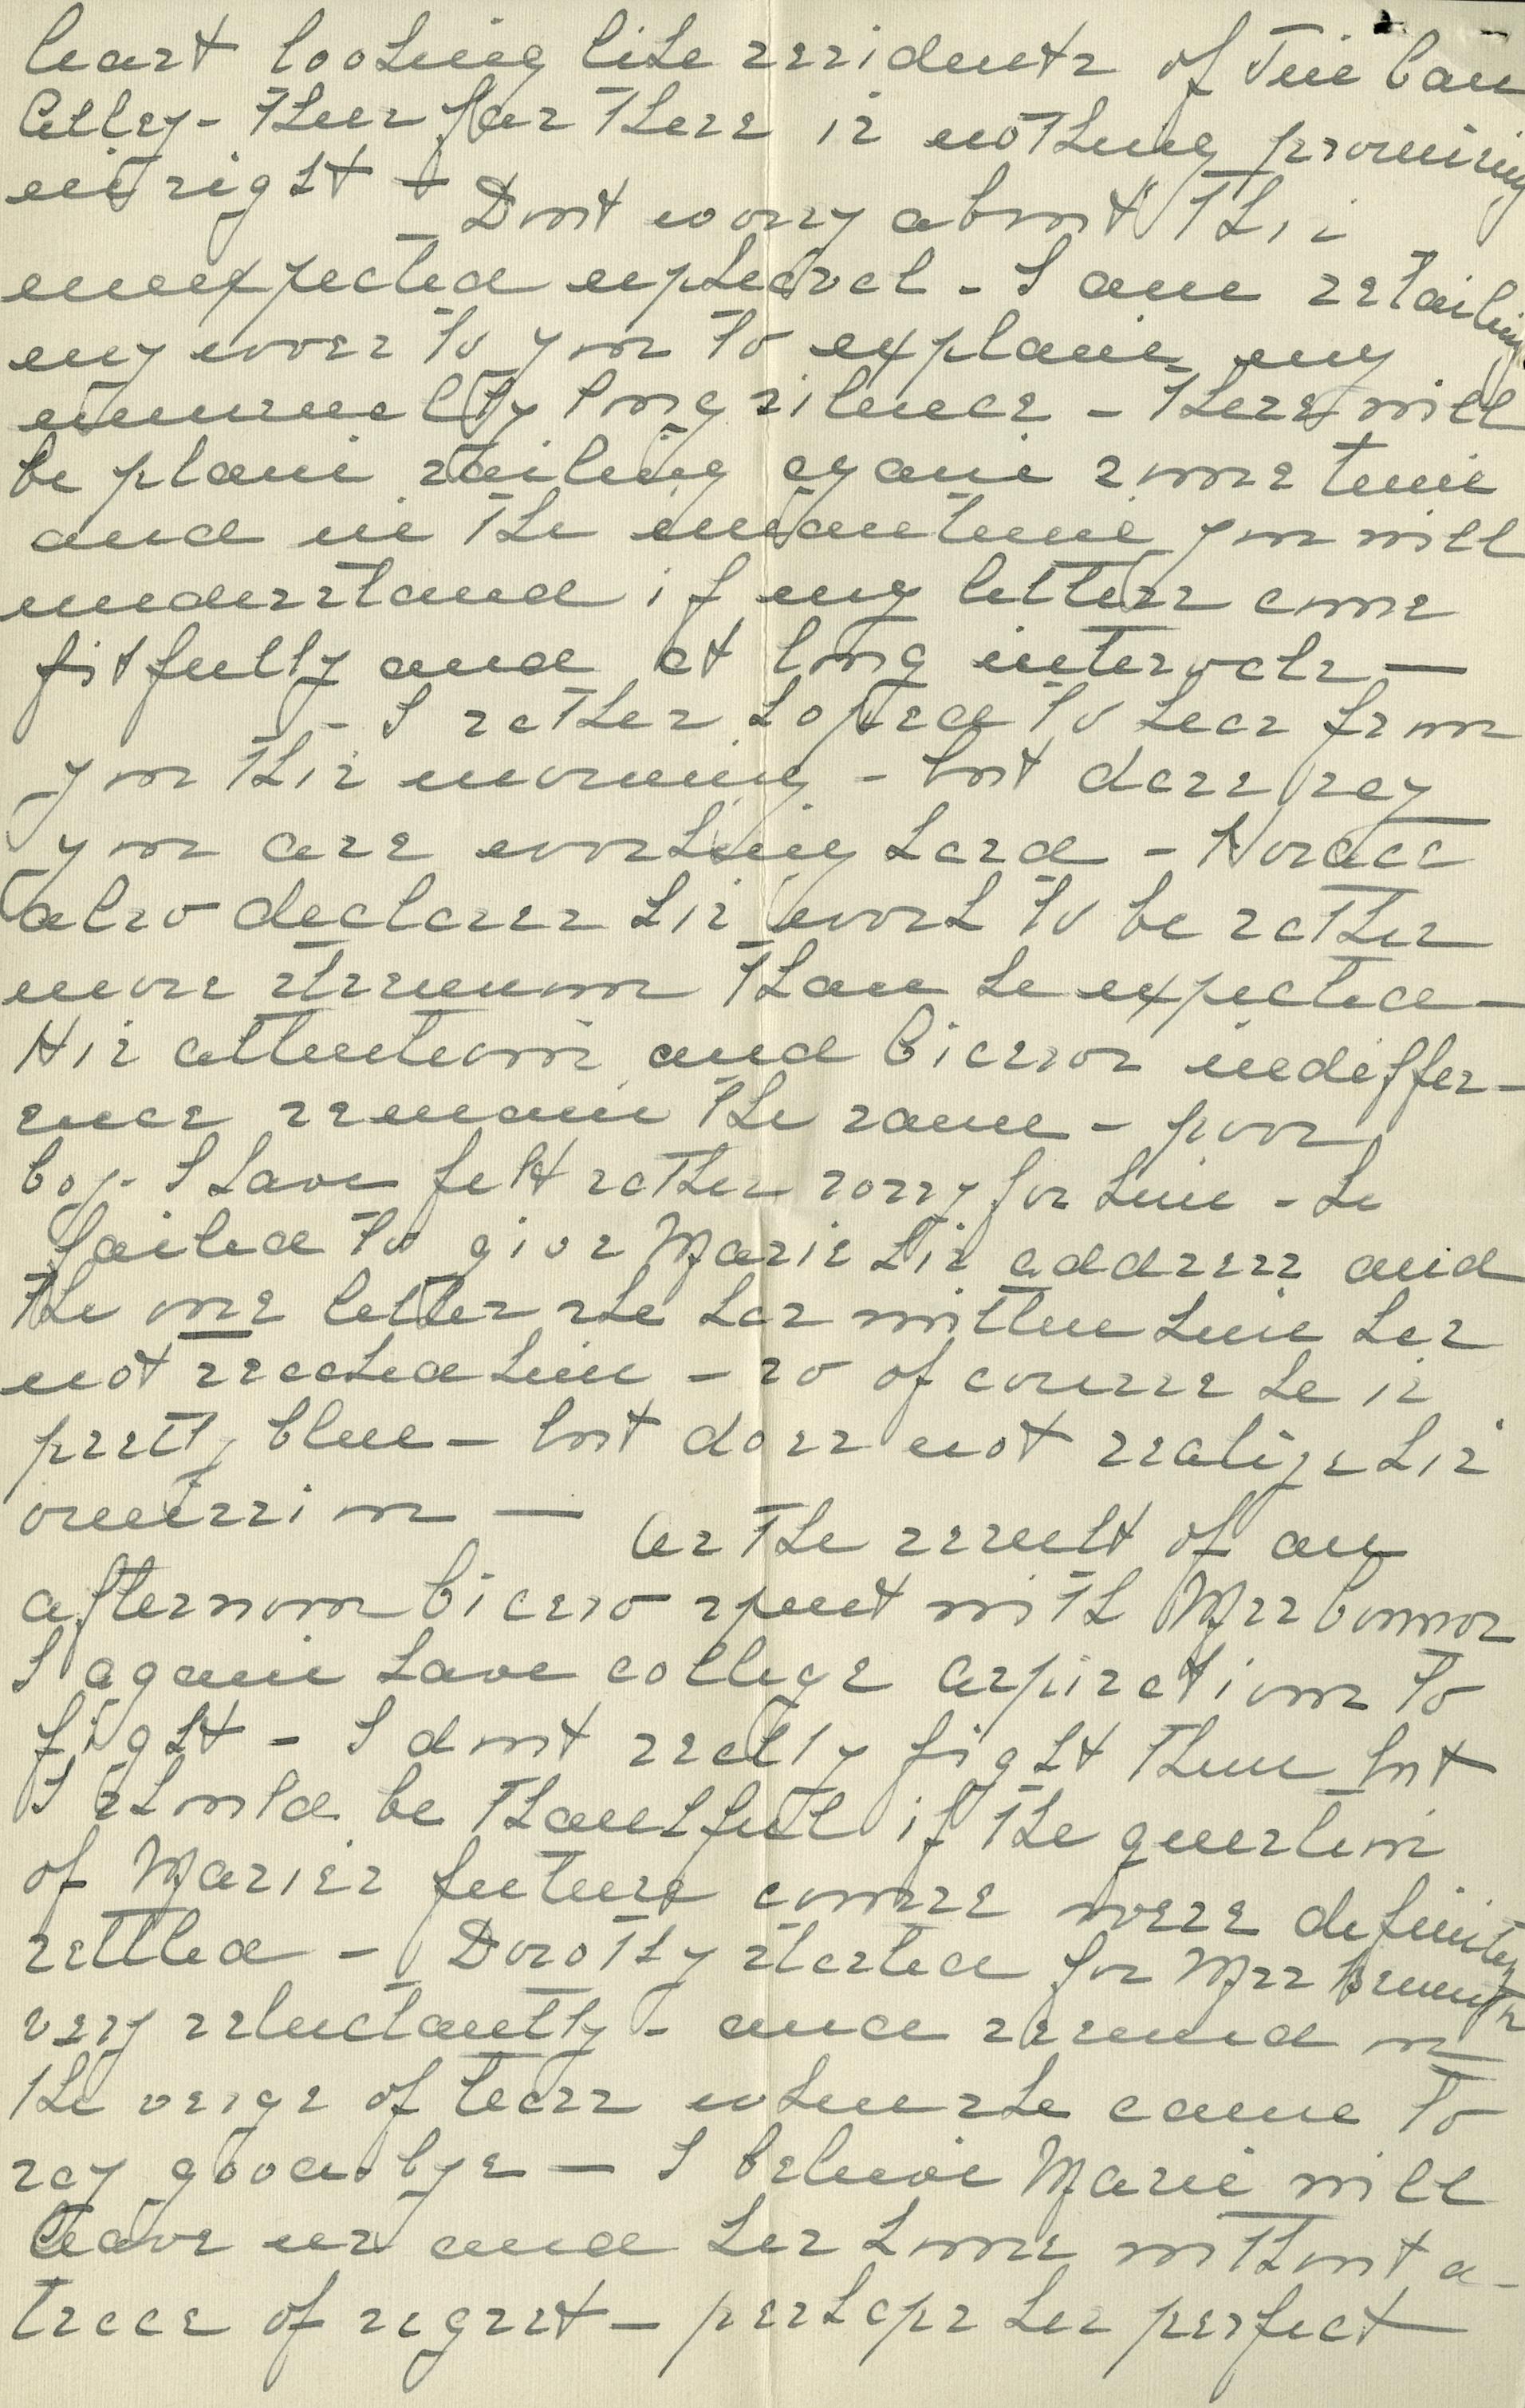 least looking like residents of Tin Can
Alley - Thus far there is nothing promising
in sight +
- Dont worry about this
unexpected upheaval - I am retailing
my woes to you to explain my
unusually long silence - There will
be plain sailing again some time
and in the meantime you will
understand if my letters come
fitfully and at long intervals -
- I rather hoped to hear from
you this morning - but dare say
you are working hard - Horace
also declares his work to be rather
more strenuous than he expected -
His attentions and Ciceros indiffer-
ence remain the same - poor
boy - I have felt rather sorry for him - he
failed to give Marie his address and
the one letter she has written him has
not reached him - so of course he is
pretty blue - but does not realize his
omission - As the result of an
afternoon Cicero spent with Mrs Connor
I again have college aspirations to
fight - I dont really fight them but
I should be thankful if the question
of Maries future course were definitely
settled - Dorothy started for Mrs
very reluctantly - and seemed on
the verge of tears when she came to
say good bye - I believe Marie will
leave us and her home without a -
trace of regret - perhaps her perfect